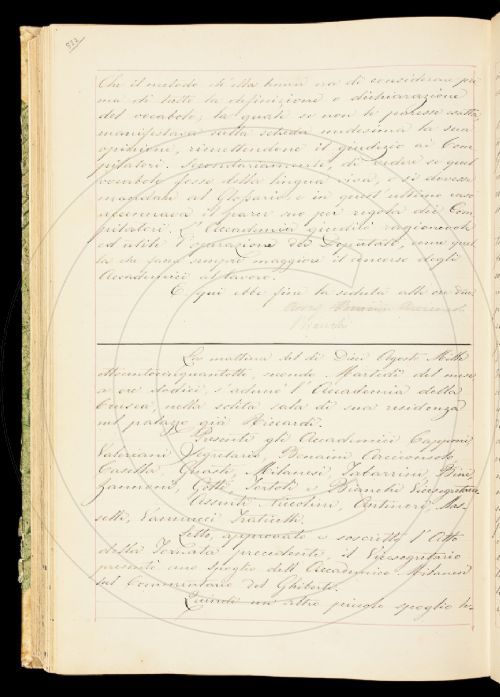 533
Che il metodo ch'ella teneva era di considerare pri-
ma di tutto la definizione o dichiarazione
del vocabolo, la quale se non le paresse esatta,
manifestava sulla scheda medesima la sua
opinione, rimettendone il giudizio ai Com-
pilatori. Secondariamente, di vedere se quel
vocabolo fosse della lingua viva, o si dovesse
mandare al Glossario, e in quest'ultimo caso
il parer suo per regola dei Com-
pilatori. L'Accademia giudicò ragionevole
ed utile l'operazione dei Deputati, come quel-
la che farà sempre maggiore il concorso degli
Accademici al lavoro.
E qui ebbe fine la seduta alle ore due.
Bianchi
La mattina del dì Dieci Agosto Mille
ottocentocinquantotto, secondo Martedì del mese
a ore dodici, s'adunò l'Accademia della
Crusca, nella solita sala di sua residenza
nel palazzo già Riccardi.
Presenti gli Accademici Capponi
Valeriani Segretario, Bonaini Arciconsolo
Casella, Guasti, Milanesi, Tabarrini, Bini,
Zannoni, Gotti, Tortoli e Bianchi Vicesegretario.
Assenti Nicolini, Antinori, Mas-
selli, Vannucci, Fraticelli.
Letto, approvato e soscritto l'Atto
della Tornata precedente, il Vicesegretario
presentò uno spoglio dell'Accademico Milanesi
sul Commentario del Ghiberti.
Quindi un altro piccolo spoglio